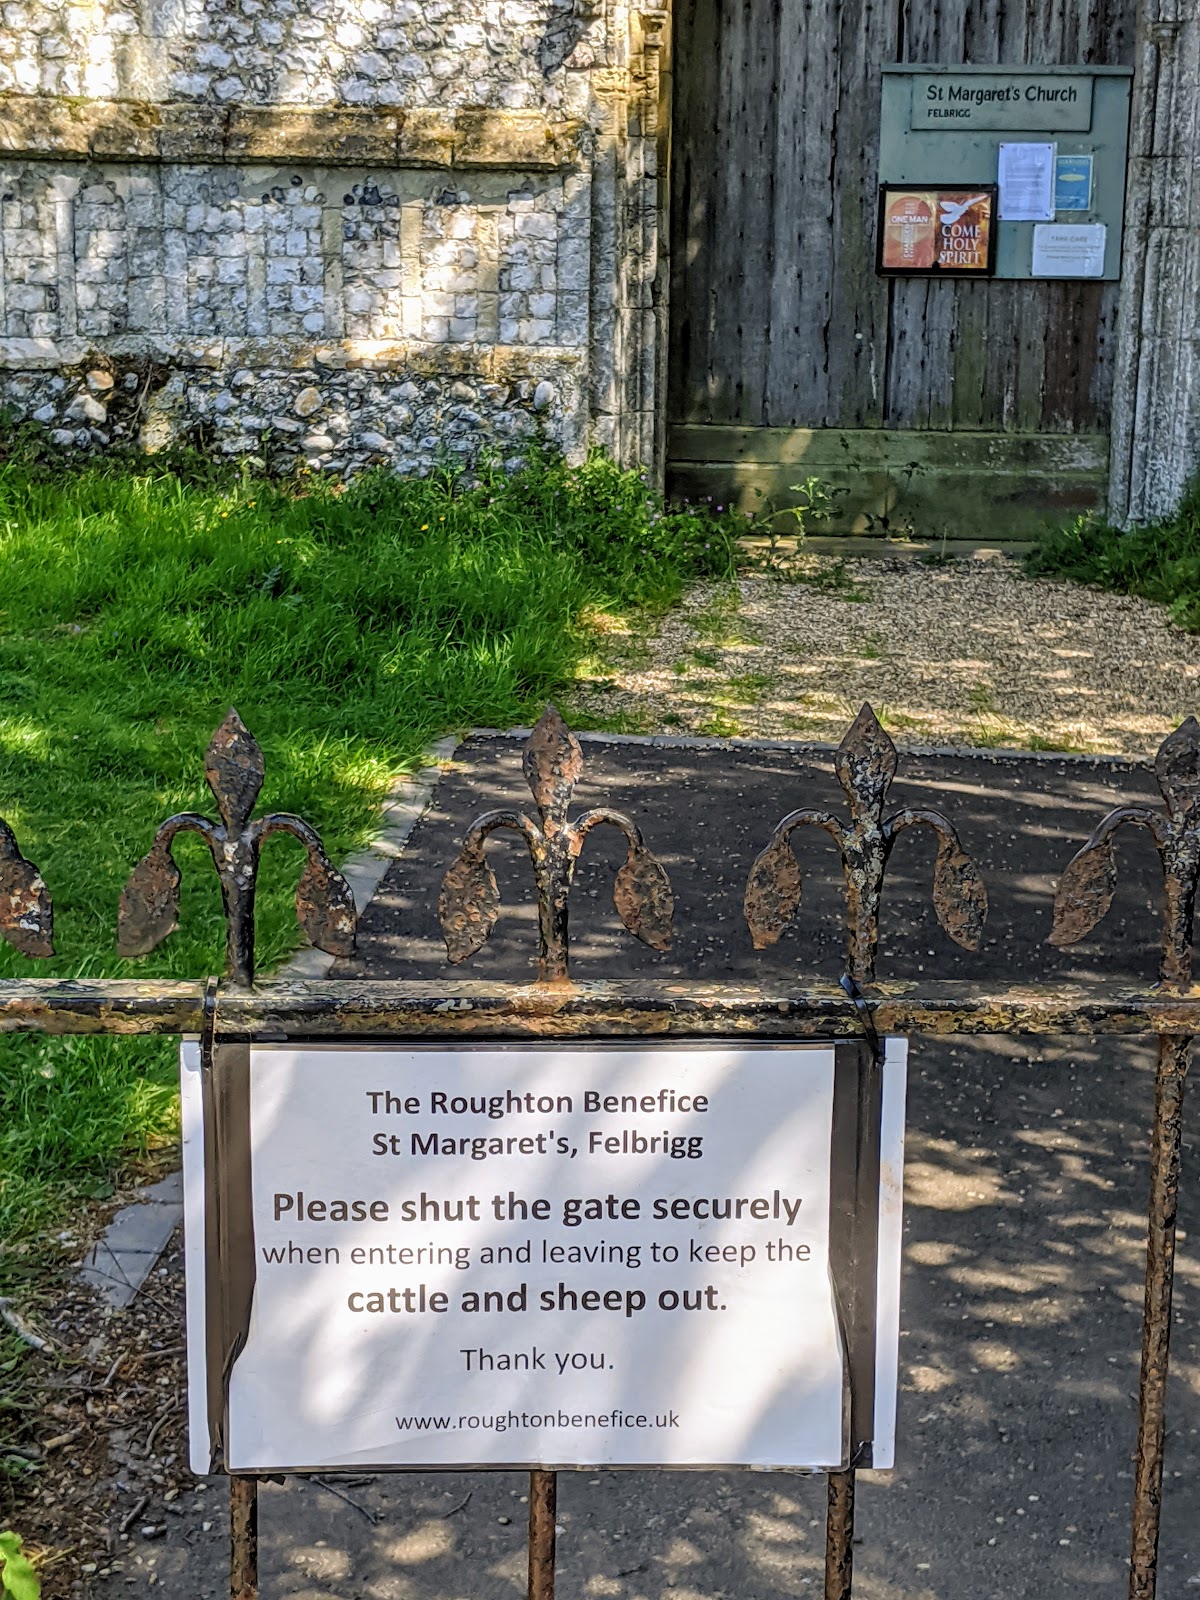 St Margaret's Church
FELBRIGG
ONE MAN
COME
HOLY
SPIRIT
TAKE CARE
The Roughton Benefice
St Margaret's, Felbrigg
Please shut the gate securely
when entering and leaving to keep the
cattle and sheep out.
Thank you.
www.roughtonbenefice.uk